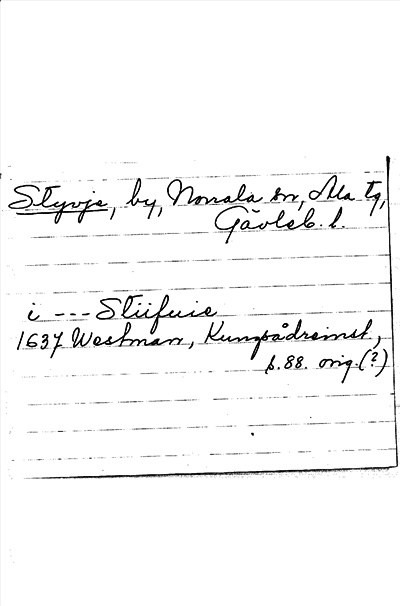 Styvje, by, Norrala sn, Ala tg,
Gävleb. l.
i --- Stiifuie
1637 Westman, Kungsådreinst,
s. 88. orig. (?)